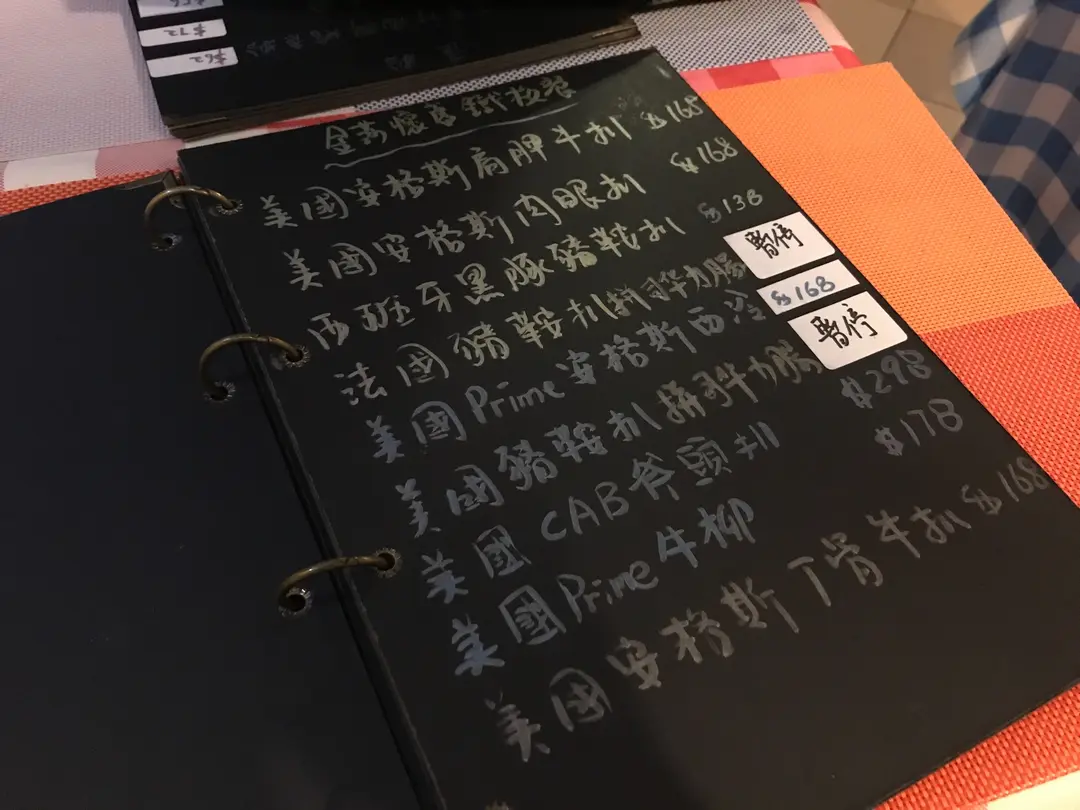 $72
$62
金莎懷舊鐵板餐
美國安格斯肩胛牛扒 $165
美國安格斯肉眼扒 $168
西班牙黑豚豬鞍扒 $138
法國豬鞍扒拼 牛力腸 暫停
美國Prime安格斯西冷 $168
美國豬鞍扒拼 牛力腸 暫停
美國CAB斧頭扒 $298
美國Prime牛柳 $178
美國安格斯丁骨牛扒 $168